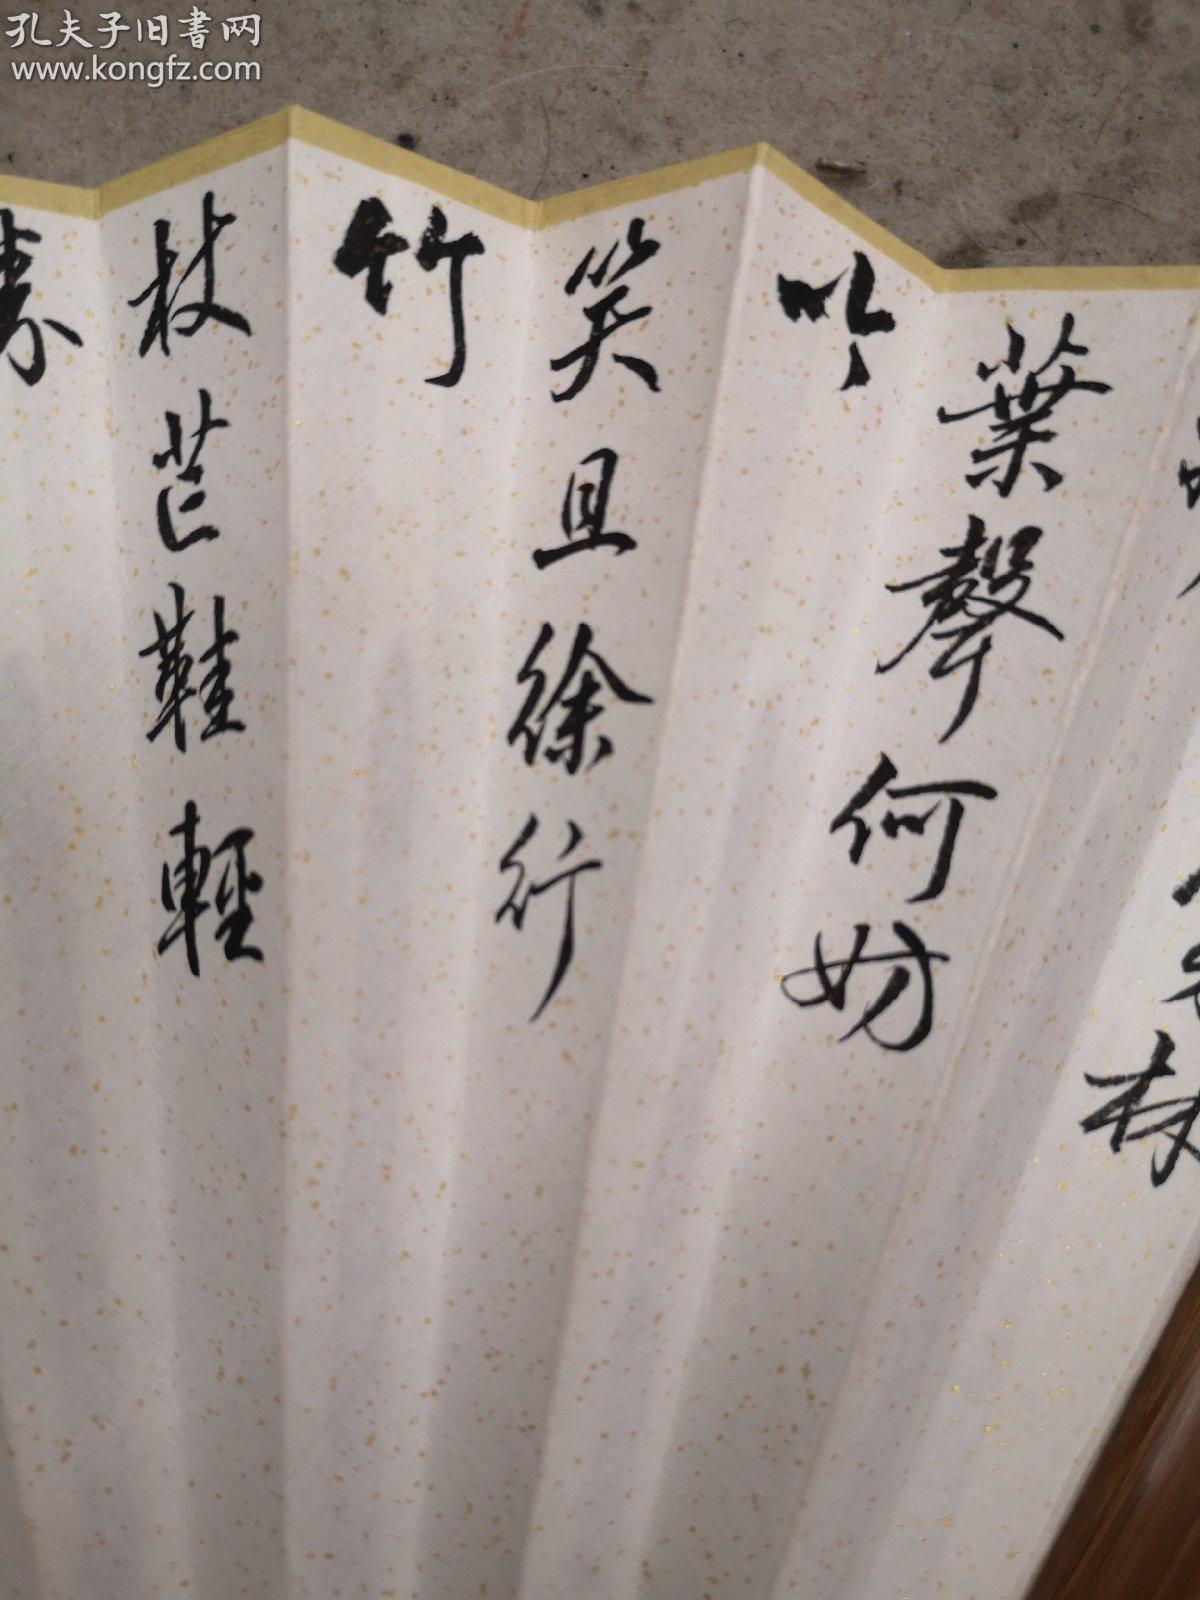 孔夫子旧書网
www.kongfz.com
林
葉聲何妨
吟
笑且徐行
竹
杖芒鞋輕